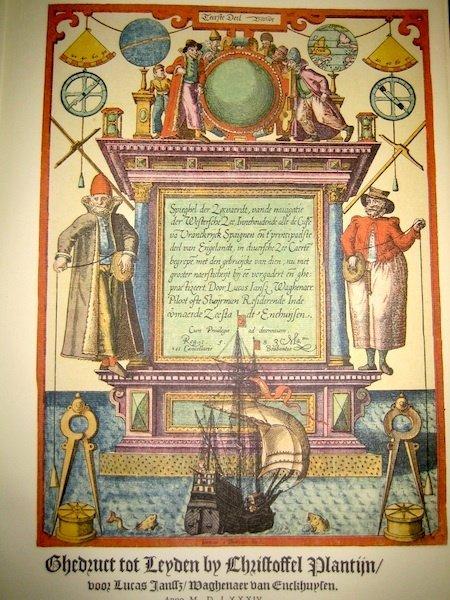 Teerste Deel
Spieghel der Zeevaerdt, vande nauigatie
der Westersche Zee, Innehoudende alle de Custẽ
vã Vranckryck Spaignen eñ t'principaelste
deel van Engelandt, in diuersche Zee Caertẽ
begrepẽ met den gebruijcke van dien, nu met
grooter naerstichejt bij ee vergadert eñ ghe-
practizeert. Door Lucas Iansz Waghenaer
Piloot ofte Stuijrman Residerende Inde
vermaerde Zeestadt Enchuijsen.
Cum Privilegio ad decennium
Reg.
Cancellarie
Brabantie
Ghedruct tot Leyden by Christoffel Plantijn/
voor Lucas Janssz/ Waghenaer van Enckhuysen.
Anno M. D. LXXXIV